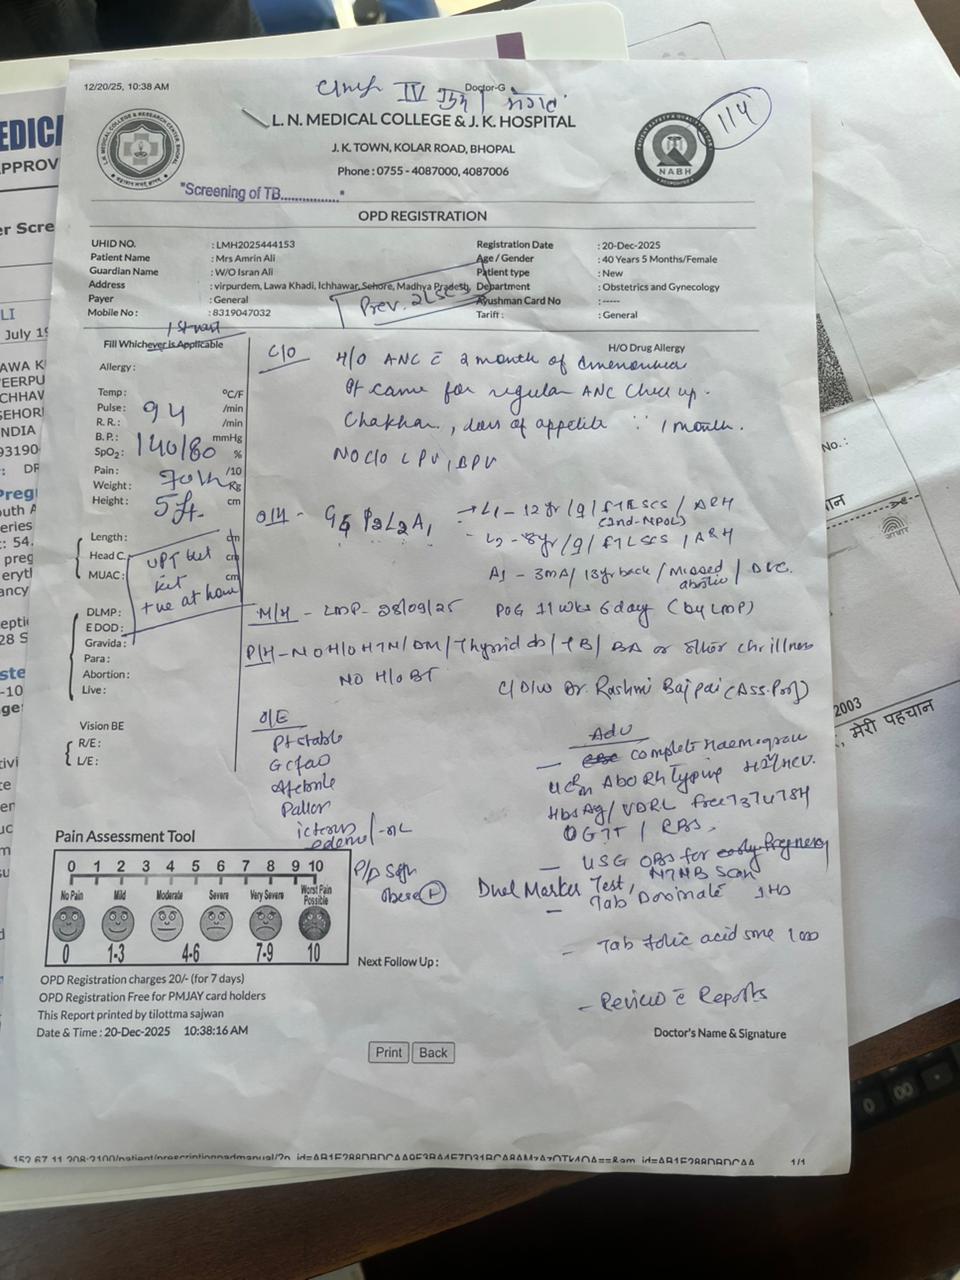 12/20/25, 10:38 AM
Doctor-G
IV
114
L. N. MEDICAL COLLEGE & J. K. HOSPITAL
J. K. TOWN, KOLAR ROAD, BHOPAL
Phone : 0755 - 4087000, 4087006
NABH
"Screening of TB................"
OPD REGISTRATION
UHID NO. : LMH2025444153
Patient Name : Mrs Amrin Ali
Guardian Name : W/O Isran Ali
Address : virpurdem, Lawa Khadi, Ichhawar, Sehore, Madhya Pradesh,
Payer : General
Mobile No : : 8319047032
Registration Date : 20-Dec-2025
Age / Gender : 40 Years 5 Months/Female
Patient type : New
Department : Obstetrics and Gynecology
Ayushman Card No : -----
Tariff : : General
Prev. 2LSCS
1st visit
Fill Whichever is Applicable
H/O Drug Allergy
Allergy :
Temp : °C/F
Pulse : 94 /min
R. R. : /min
B. P. : 140/80 mmHg
SpO2 : %
Pain : /10
Weight : 70 Kg
Height : 5ft. cm
Length : cm
Head C. cm
MUAC : cm
UPT test
kit
+ve at home
DLMP :
EDOD :
Gravida :
Para :
Abortion :
Live :
Vision BE
R/E :
L/E :
C/O H/O ANC c̄ 2 month of amenorrhea
Pt came for regular ANC check up.
loss of appetite 1 month.
NO C/O LPV, BPV
O/H - G P2L2A1
→ L1 - 12 yr / FTLSCS /
(2nd - NPOL)
L2 - 8yr / FTLSCS /
A1 - 3mA / 13yr back / Missed abortion / D&C.
M/H - LMP - 28/09/25 POG 11 wks 6 day (by LMP)
P/H - NO H/O HTN / DM / Thyroid do / TB / BA or other chr illness
NO H/O BT
C/D/W Dr. Rashmi Bajpai (Ass. Prof)
O/E
Pt stable
GCfair
Afebrile
Pallor
icterus
edema
P/A soft
obese
Adv
- complete Haemogram
Urm ABO Rh Typing HIV HCV.
HbsAg / VDRL free T3 T4 TSH
OGTT / RBS.
- USG OBS for early Pregnancy
NTNB Scan
Dual Marker Test,
- Tab Doxinate 1 HS
- Tab folic acid 5mg 1 OD
- Review c̄ Reports
Pain Assessment Tool
0 1 2 3 4 5 6 7 8 9 10
No Pain Mild Moderate Severe Very Severe Worst Pain Possible
0 1-3 4-6 7-9 10
Next Follow Up :
OPD Registration charges 20/- (for 7 days)
OPD Registration Free for PMJAY card holders
This Report printed by tilottma sajwan
Date & Time : 20-Dec-2025 10:38:16 AM
Doctor's Name & Signature
Print Back
1/1
2003
मेरी पहचान